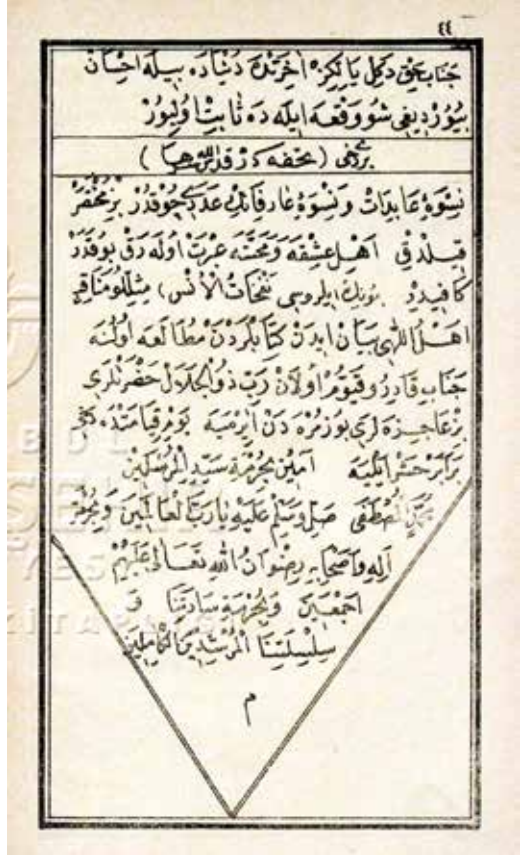 ٤٤
جناب حق دكل يالكز آخرتده دنياده بيله احسان
بيورديغى شو وقعه ايله ده ثابت اوليور
برنجى (تحفه
نسوۀ عابدات ونسوۀ عارفاتك عددى چوقدر بز مختصر
قيلدق اهل عشقه ومحبته عبرت اوله رق بو قدر
كافيدر بونك ايلروسى نفحات الأنس) مثللو مناقب
اهل اللهى بيان ايدن كتابلردن مطالعه اولنه
جناب قادر وقيوم اولان رب ذو الجلال حضرتلرى
بز عاجزه لرى بو زمره دن ايرميه يوم قيامتده دخى
برابر حشر ايليه آمين بحرمة سيد المرسلين
محمد المصطفى صلى وسلم عليه يا رب العالمين وبحرمة
آله وأصحابه رضوان الله تعالى عليهم
اجمعين وبحرمة ساداتنا و
سلسلتنا المرشدين الكاملين
م
BDÜL
SEYES
KİTAP